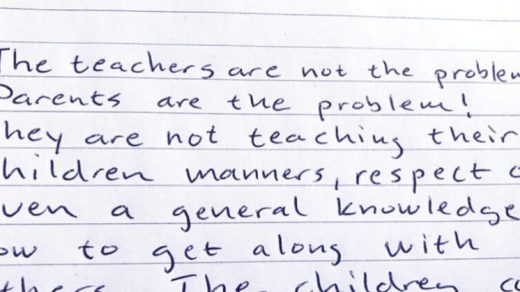 The teachers are not the problem
Parents are the problem!
They are not teaching their
children manners, respect
even a general knowledge
how to get along with
others. The children